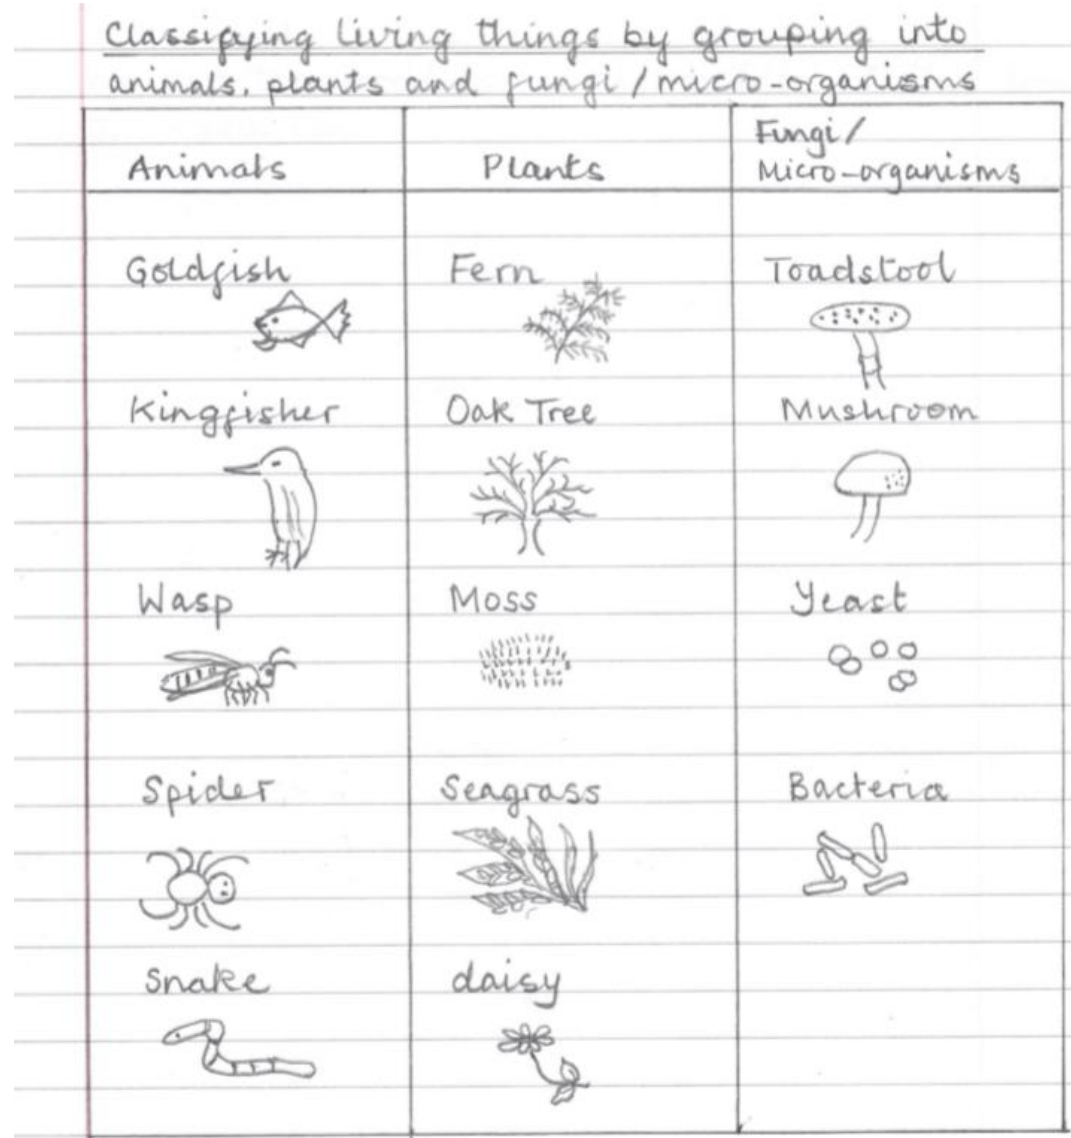 Classifying living things by grouping into
animals, plants and fungi / micro-organisms
Animals Plants Fungi/
Micro-organisms
Goldfish Fern Toadstool
Kingfisher Oak Tree Mushroom
Wasp Moss Yeast
Spider Seagrass Bacteria
Snake daisy